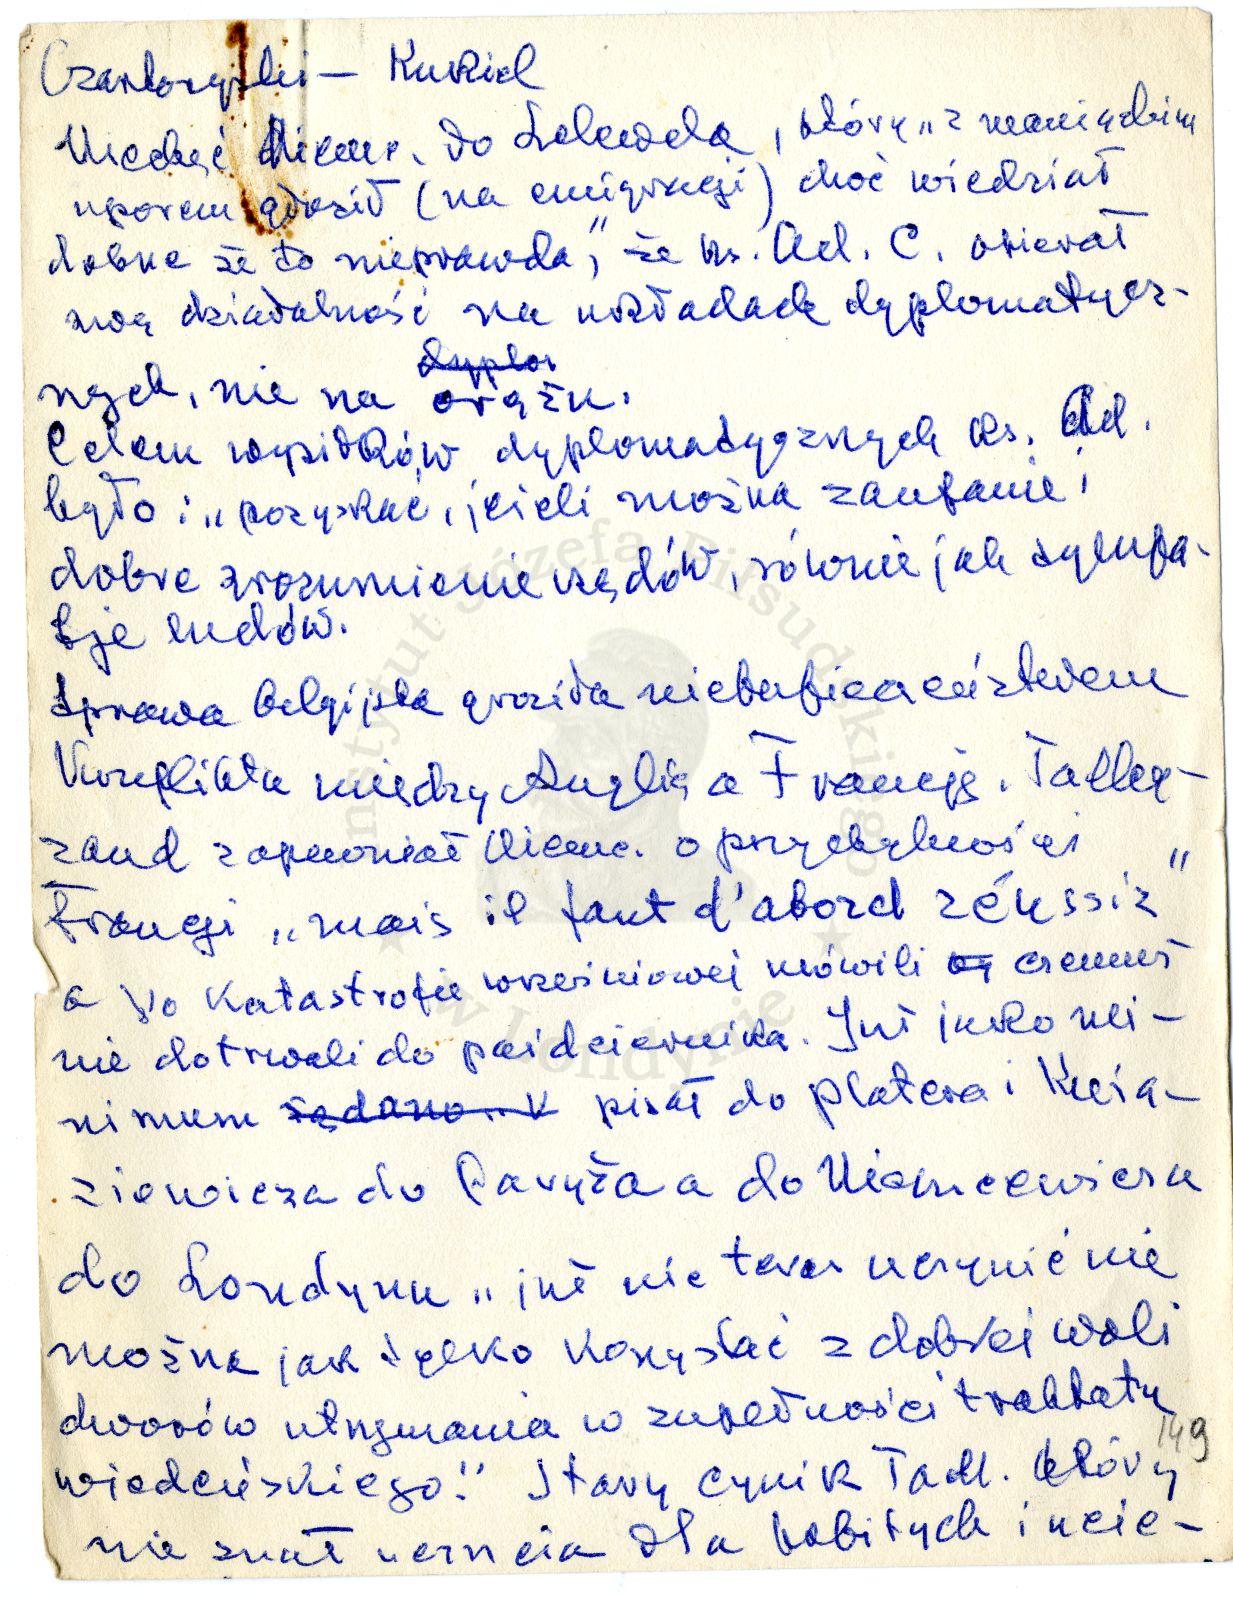 Czartoryski – Kukiel
Niechęć Niemc. do Lelewela, który „z maniackim
uporem głosił (na emigracji) choć wiedział
dobrze że to nieprawda", że ks. Ad. C. opierał
swą działalność na układach dyplomatycz-
nych, nie na dyplo orężu.
Celem wysiłków dyplomatycznych ks. Ad.
było: „pozyskać, jeżeli można zaufanie i
dobre zrozumienie rządów, równie jak sympa-
tje ludów.
Sprawa belgijska groziła niebezpieczeństwem
Konfliktu między Anglią a Francją. Talley-
rand zapewniał Niemc. o przychylności
Francji „mais il faut d'abord réussir"
a po Katastrofie wrześniowej mówili czemuś
nie dotrwali do października. Już jako mi-
nimum żądano „ pisał do Platera i Knia-
ziewicza do Paryża a do Niemcewicza
do Londynu „już nic teraz uczynić nie
można jak tylko korzystać z dobrej woli
dworów utrzymania w zupełności traktatu
wiedeńskiego." Stary cynik Tall. który
nie znał uczucia dla pobitych i ucie-
149
Instytut Józefa Piłsudskiego
w Londynie